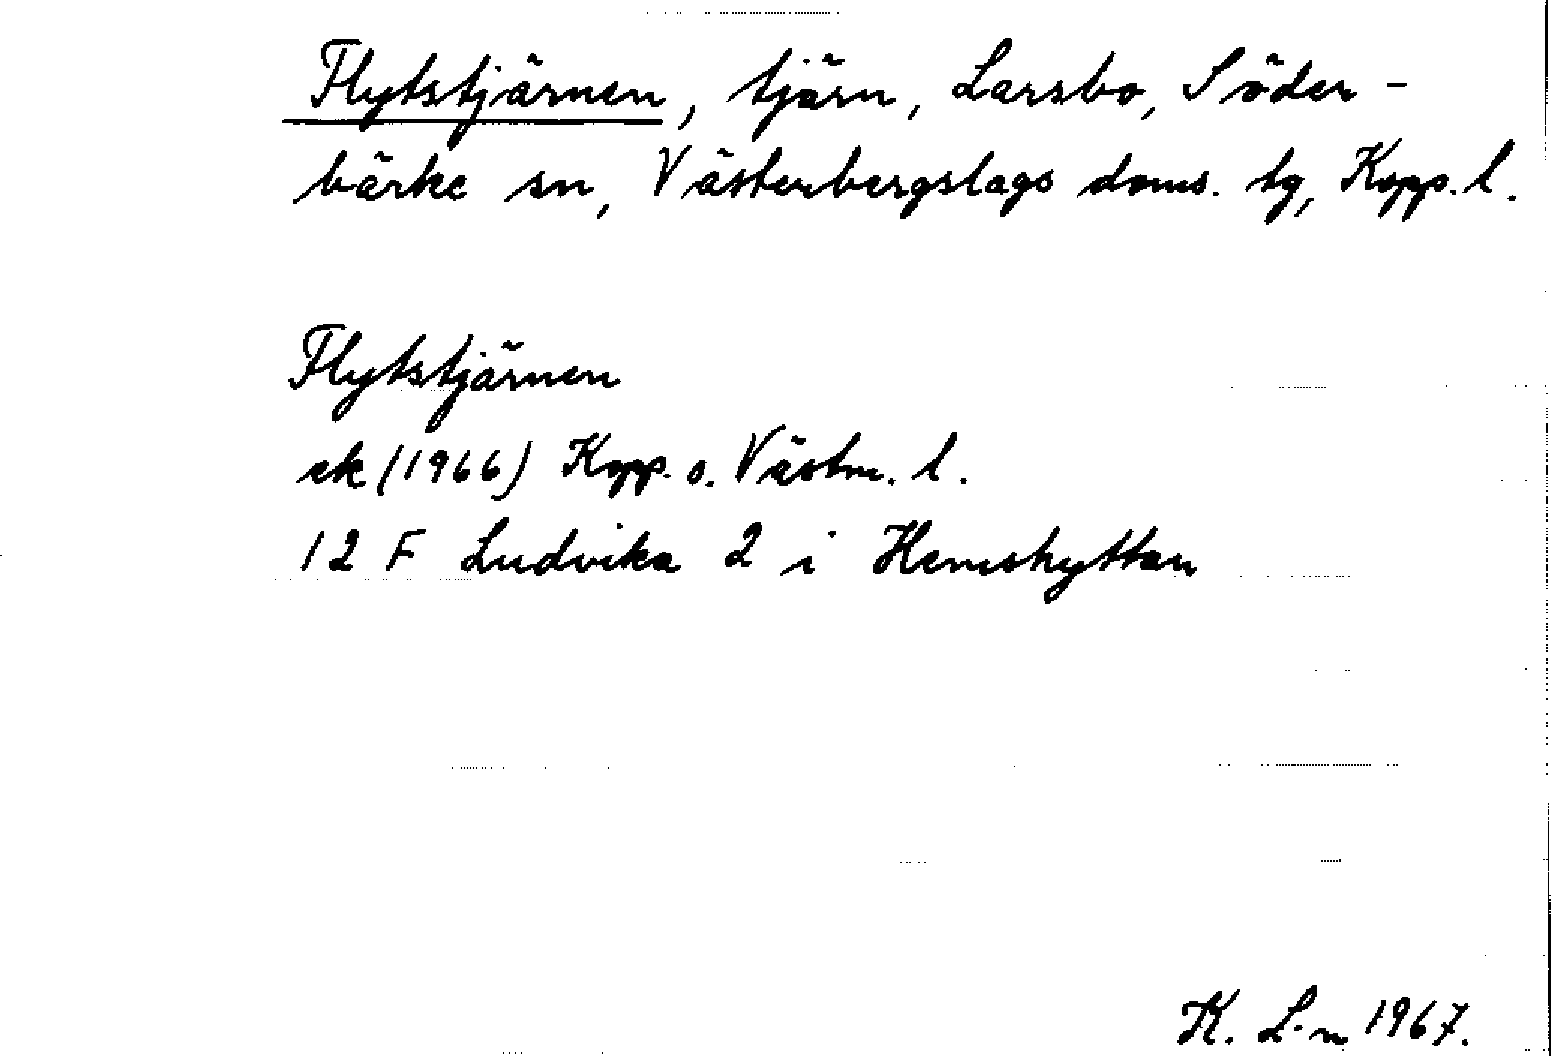 Flytstjärnen, tjärn, Larsbo, Söder-
bärke sn, Västerbergslags doms. tg, Kopp. l.
Flytstjärnen
ek (1966) Kopp. o. Västm. l.
12 F Ludvika 2 i Hemshyttan
K. L-n 1967.